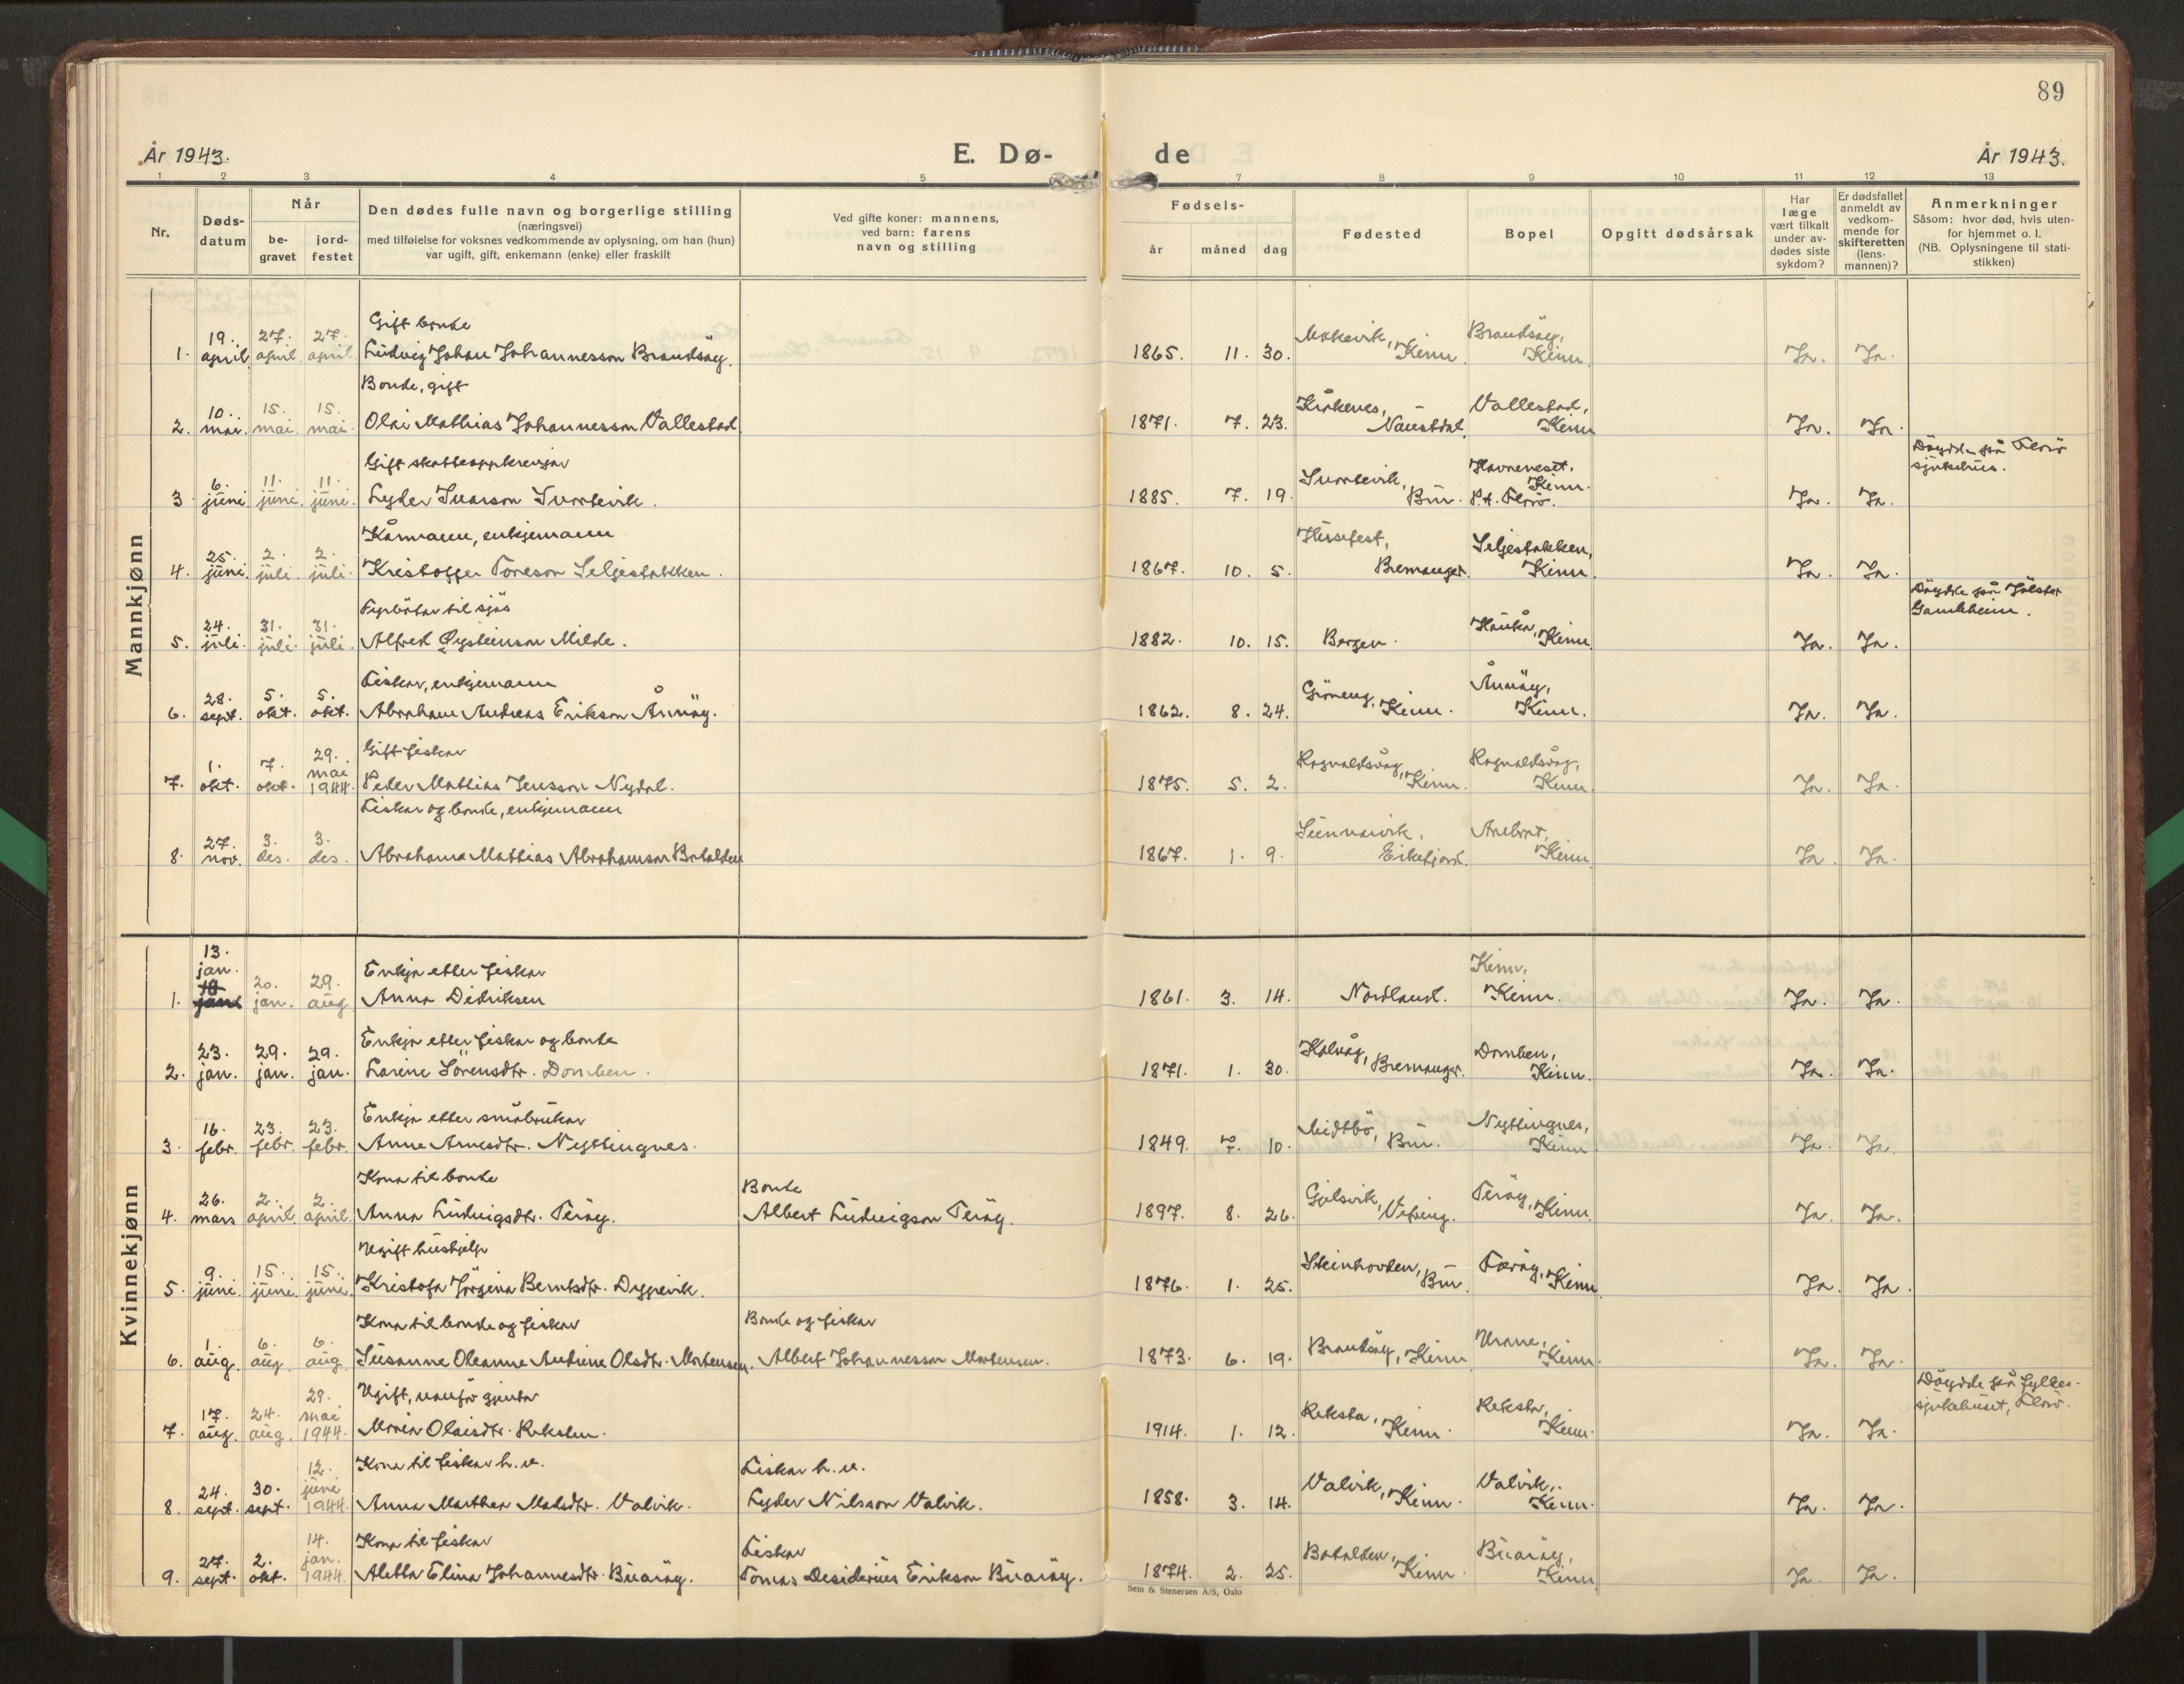 89
År 1943. E. Dø- de År 1943.
1 2 3 4 5 7 8 9 10 11 12 13
Nr.
Døds-
datum
Når
be-
gravet
jord-
festet
Den dødes fulle navn og borgerlige stilling
(næringsvei)
med tilføielse for voksnes vedkommende av oplysning, om han (hun)
var ugift, gift, enkemann (enke) eller fraskilt
Ved gifte koner: mannens,
ved barn: farens
navn og stilling
Fødsels-
år måned dag
Fødested
Bopel
Opgitt dødsårsak
Har
læge
vært tilkalt
under av-
dødes siste
sykdom?
Er dødsfallet
anmeldt av
vedkom-
mende for
skifteretten
(lens-
mannen)?
Anmerkninger
Såsom: hvor død, hvis uten-
for hjemmet o. l.
(NB. Oplysningene til stati-
stikken)
Mannkjønn
Gift bonde
1. 19. april 27. april 27. april. Ludvig Johan Johannesson Brandsöy. 1865. 11. 30. Kinn. Brandsöy, Kinn Ja. Ja.
Bonde, gift
2. 10. mai. 15. mai. 15. mai. Olai Mathias Johannesson Vallestad 1871. 7. 23. Kråkenes, Naustdal. Vallestad, Kinn Ja. Ja.
Gift skatteoppkrevjar
3 6. juni. 11. juni. 11. juni. Lyder Ivarson Svortevik. 1885. 7. 19. Svortevik, Bru. Havreneset, Kinn. P.t. Florö. Ja. Ja. Döydde på Florö sjukehus.
Kårmann, enkjemann
4. 25. juni. 2. juli. 2. juli. Kristoffer Toreson Seljestokken. 1867. 10. 5. Husefest, Bremanger. Seljestokken, Kinn Ja. Ja.
Fyrbötar til sjös
5. 24. juli. 31. juli. 31. juli. Alfred Øysteinson Milde. 1882. 10. 15. Bergen. Kinn. Ja. Ja. Döydde på Jölster Gamleheim.
Fiskar, enkjemann
6. 28. sept. 5. okt. 5. okt. Abraham Andreas Erikson Ånnöy. 1862. 8. 24. Gröneng, Kinn. Ånnöy, Kinn. Ja. Ja.
Gift fiskar
7. 1. okt. 7. okt. 29. mai 1944. Peder Mathias Jensson Nydal. 1875. 5. 2. Rognaldsvåg, Kinn. Rognaldsvåg, Kinn. Ja. Ja.
Fiskar og bonde, enkjemann
8. 27. nov. 3. des. 3. des. Abraham Mathias Abrahamson Batalden 1867. 1. 9. Sunnarvik, Eikefjord. Årebrot, Kinn Ja. Ja.
Kvinnekjønn
Enkja etter fiskar
1. 13. jan. 20. jan. 29. aug Anna Didriksen 1861. 3. 14. Nordland. Kinn, Kinn. Ja. Ja.
Enkja etter fiskar og bonde
2. 23. jan. 29. jan. 29. jan. Larine Sörensdtr. Domben. 1871. 1. 30. Kalvåg, Bremanger. Domben, Kinn. Ja. Ja.
Enkja etter småbrukar
3. 16. febr. 23. febr. 23. febr. Anne Arnesdtr. Nyttingnes. 1849. 7. 10. Midtbö, Bru. Nyttingnes, Kinn Ja. Ja.
Kona til bonde Bonde
4. 26. mars 2. april 2. april. Anna Ludvigsdtr. Teröy. Albert Ludvigson Teröy. 1897. 8. 26. Gjelsvik, Vefring. Teröy, Kinn. Ja. Ja.
Ugift hushjelp
5. 9. juni. 15. juni. 15. juni. Kristofa Jörgina Berntsdtr. Dypevik. 1876. 1. 25. Steinhovden, Bru. Færöy, Kinn Ja. Ja.
Kona til bonde og fiskar Bonde og fiskar
6. 1. aug. 6. aug. 6. aug Susanne Oleanne Andrine Olsdtr. Mortensen. Albert Johannesson Mortensen. 1873. 6. 19. Brandsöy, Kinn Urane, Kinn. Ja. Ja.
Ugift, vanfør gjenta
7. 17. aug. 24. aug. 29. mai 1944. Olaisdtr. Reksten. 1914. 1. 12. Reksta, Kinn. Reksta, Kinn. Ja. Ja. Döydde på fylkes-sjukehuset, Florö.
Kona til fiskar h. v. Fiskar h. v.
8. 24. sept. 30. sept. 12. juni 1944. Anna Marthea Madsdtr. Valvik. Lyder Nilsson Valvik. 1858. 3. 14. Valvik, Kinn. Valvik, Kinn. Ja. Ja.
Kona til fiskar Fiskar
9. 27. sept. 2. okt. 14. jan. 1944. Aletta Elina Johannesdtr. Buaröy. Tomas Desiderius Erikson Buaröy. 1874. 2. 25. Batalden, Kinn. Buaröy, Kinn. Ja. Ja.
Sem & Stenersen A/S, Oslo